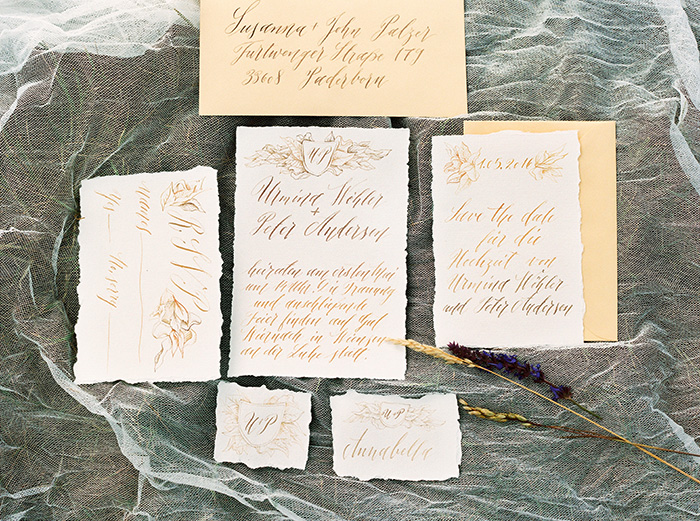 Susanna + John Palzer
Furtwenger Straße 177
33608 Paderborn
WP
Urmina Wöhler
+
Peter Andersen
heiraten am ersten Mai
um 14 Uhr
und anschliessende
Feier finden auf Gut
in Winsen
an der Luhe statt.
1.05.2016
Save the date
für die
Hochzeit von
Urmina Wöhler
und Peter Andersen
RSVP
WP
WP
Annabella